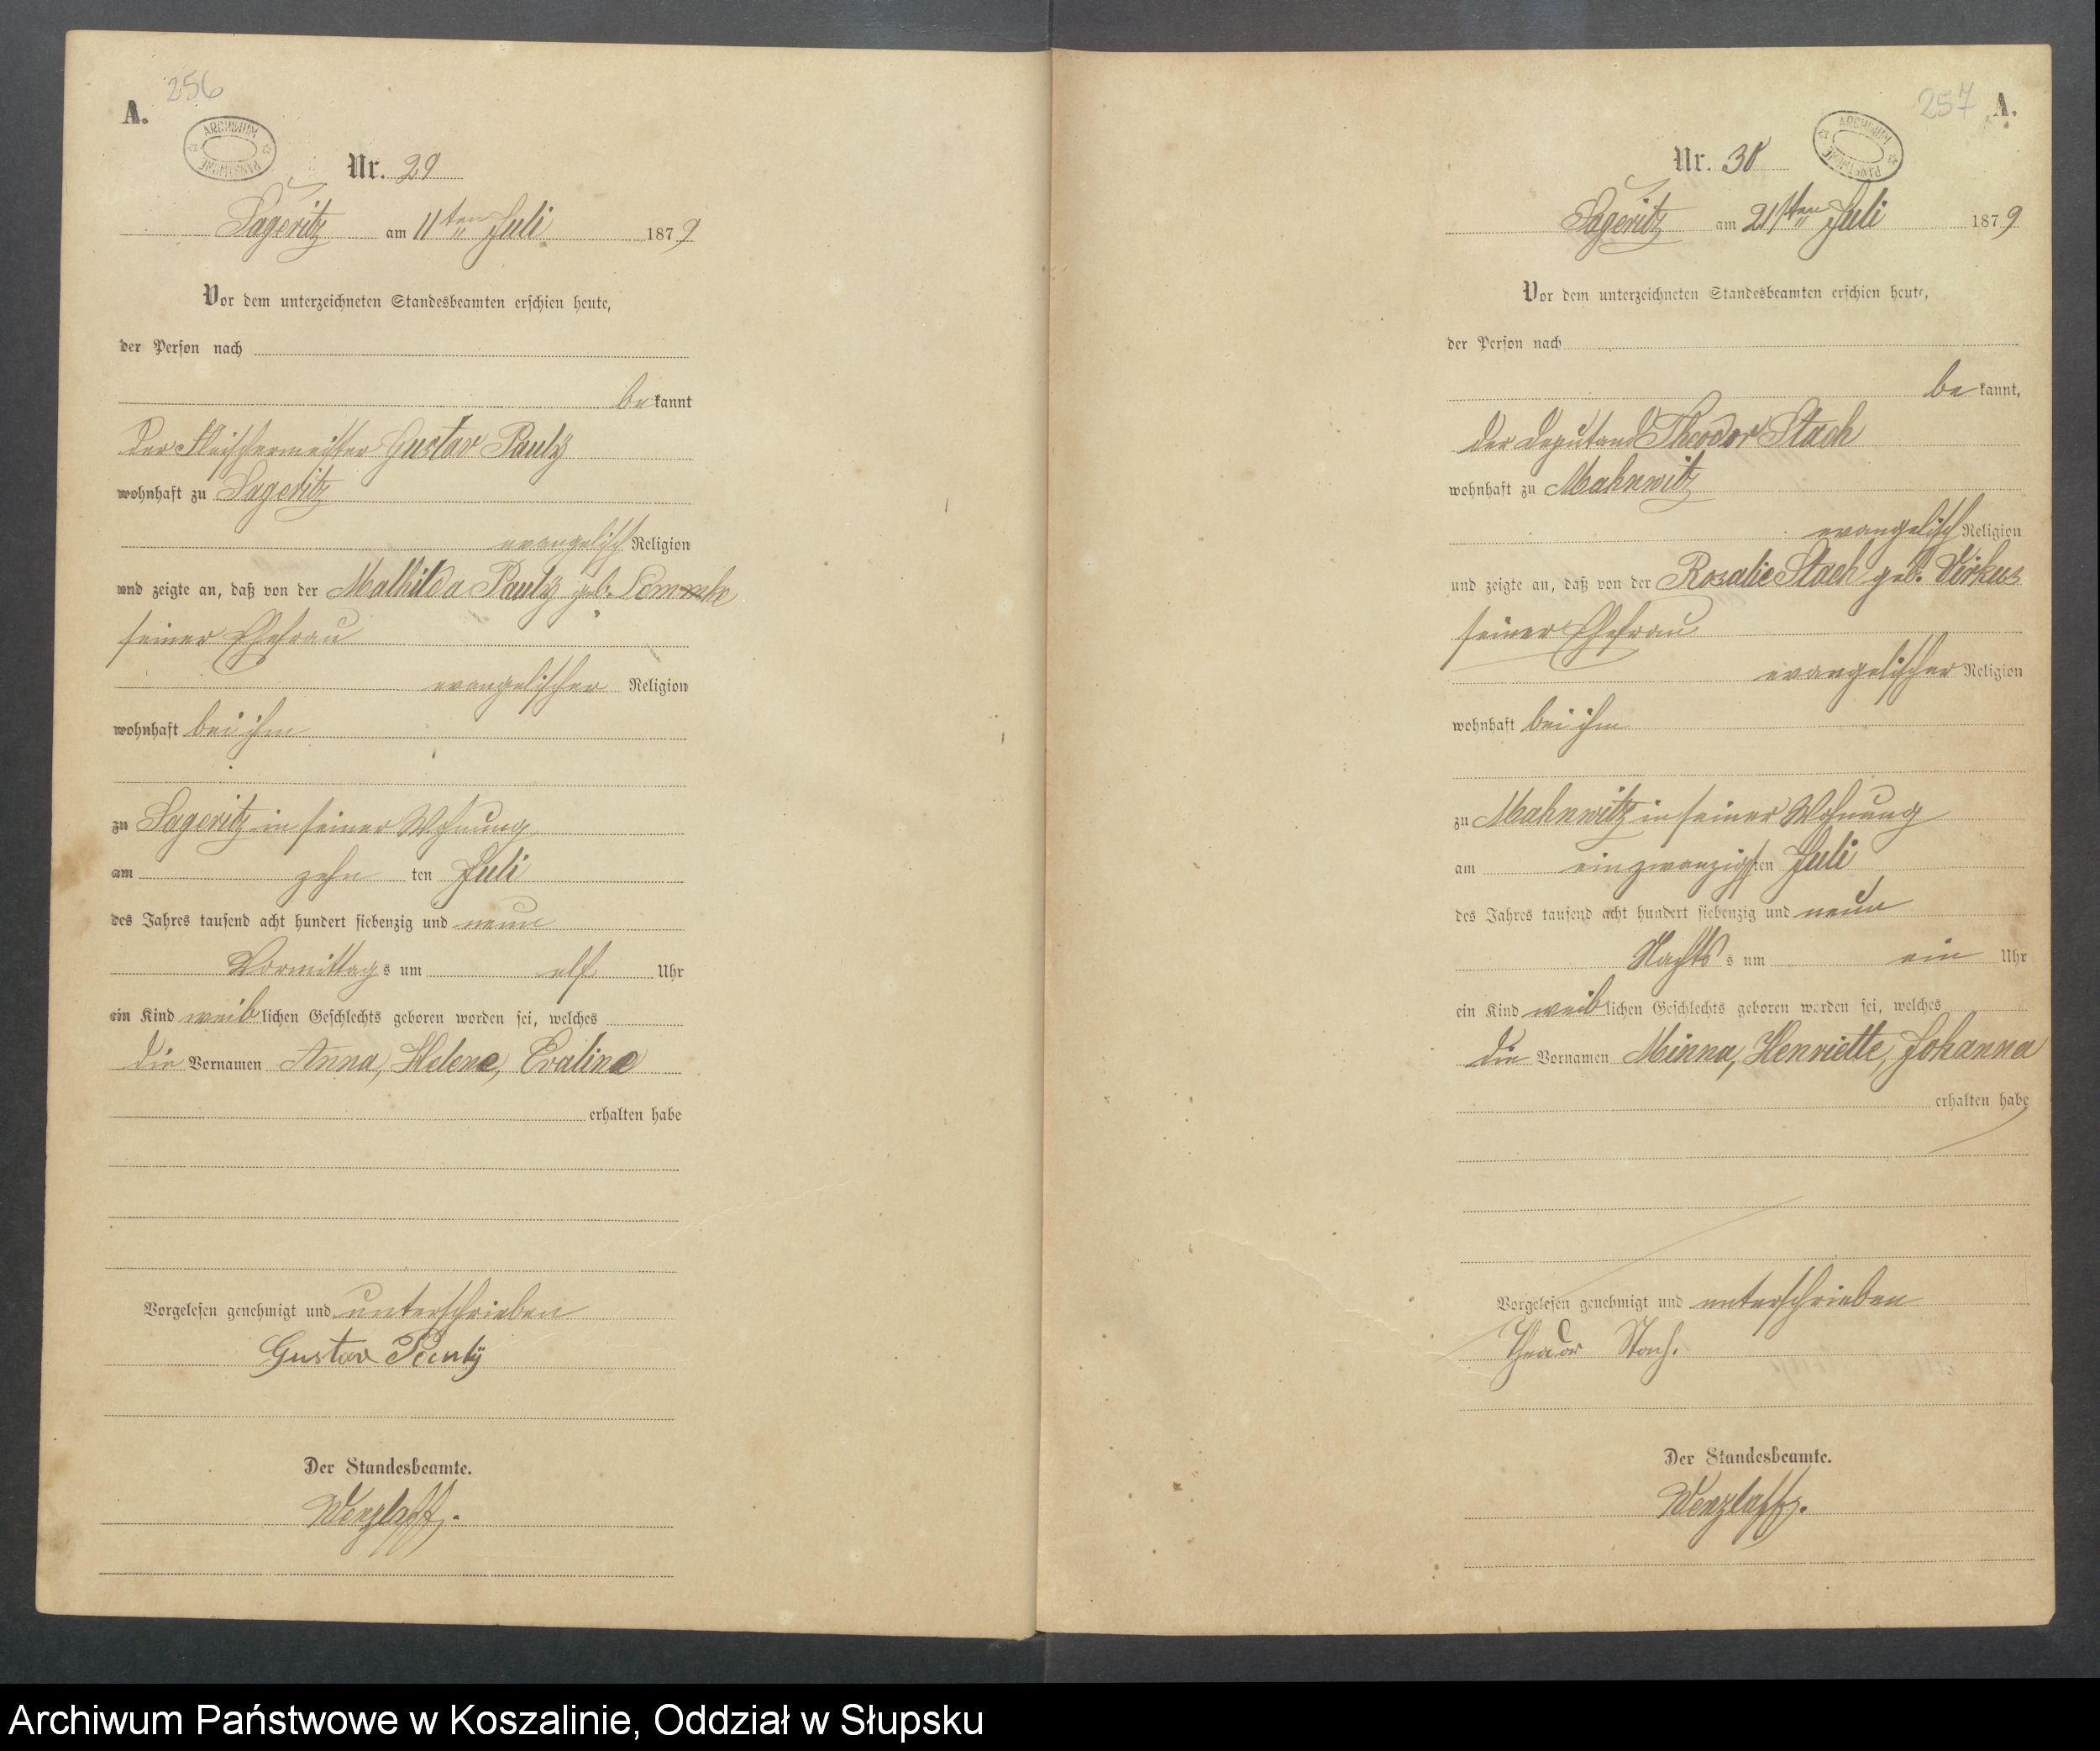 256
A.
ARCHIWUM PAŃSTWOWE
Nr. 29
Sageritz am 11ten Juli 1879
Vor dem unterzeichneten Standesbeamten erschien heute,
der Person nach
be kannt
der Fleischermeister Gustav Pauly
wohnhaft zu Sageritz
evangelisch Religion
und zeigte an, daß von der Mathilda Pauly geb. Lemmke
seiner Ehefrau
evangelischer Religion
wohnhaft bei ihm
zu Sageritz in seiner Wohnung
am zehn ten Juli
des Jahres tausend acht hundert siebenzig und neun
Vormittag s um elf Uhr
ein Kind weib lichen Geschlechts geboren worden sei, welches
die Vornamen Anna, Helene, Evaline
erhalten habe
Vorgelesen genehmigt und unterschrieben
Gustav Pauly
Der Standesbeamte.
Wenzlaff.
257 A.
ARCHIWUM PAŃSTWOWE
Nr. 30
Sageritz am 21sten Juli 1879
Vor dem unterzeichneten Standesbeamten erschien heute,
der Person nach
be kannt,
der Deputand Theodor Stach
wohnhaft zu Mahnwitz
evangelisch Religion
und zeigte an, daß von der Rosalie Stach geb. Virkus
seiner Ehefrau
evangelischer Religion
wohnhaft bei ihm
zu Mahnwitz in seiner Wohnung
am einzwanzigsten Juli
des Jahres tausend acht hundert siebenzig und neun
Nachts s um ein Uhr
ein Kind weib lichen Geschlechts geboren worden sei, welches
die Vornamen Minna, Henriette, Johanna
erhalten habe
Vorgelesen genehmigt und unterschrieben
Theodor Stach.
Der Standesbeamte.
Wenzlaff.
Archiwum Państwowe w Koszalinie, Oddział w Słupsku